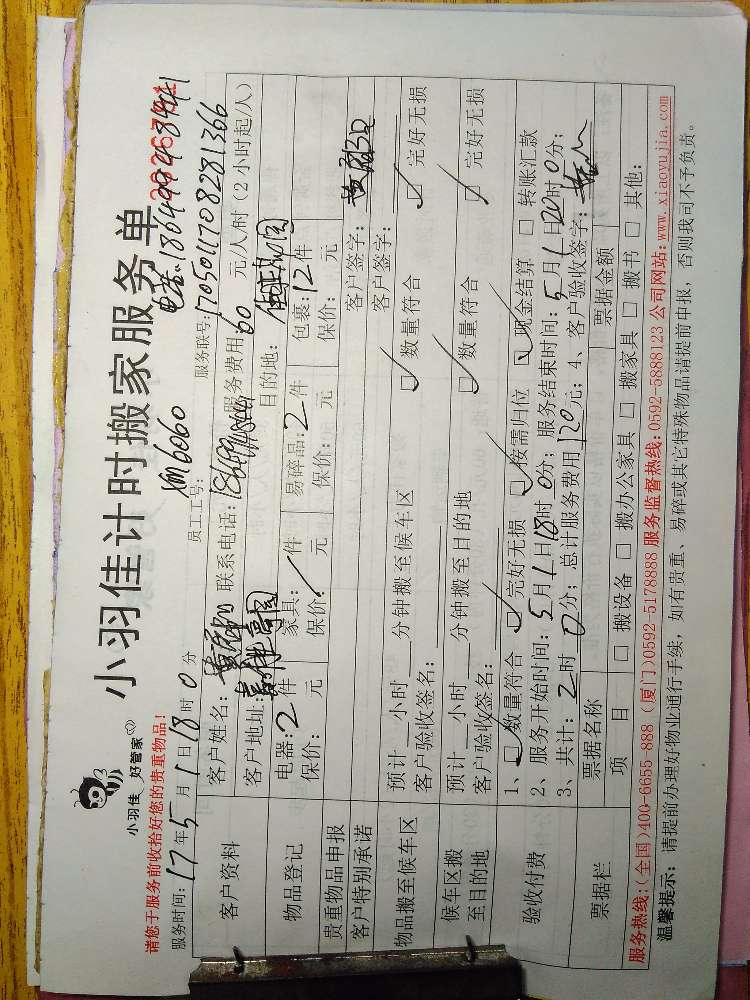 小羽佳计时搬家服务单
小羽佳 好管家
请您于服务前收拾好您的贵重物品！
电话：18649948441
服务时间：17年5月1日18时0分
员工工号：XM6060
服务联号：170501170828 1366
客户资料
客户姓名：
联系电话：
服务费用60元/人/时（2小时起/人）
客户地址：
目的地：
物品登记
电器：2件
家具：/件
易碎品：2件
包裹：12件
保价： 元
保价： 元
保价： 元
保价： 元
贵重物品申报
客户签字：
客户特别承诺
客户签字：
物品搬至候车区
预计 小时 分钟搬至候车区
□数量符合
□完好无损
客户验收签名：
候车区搬至目的地
预计 小时 分钟搬至目的地
□数量符合
□完好无损
客户验收签名：
验收付费
1、□数量符合 □完好无损 □按需归位 □现金结算 □转账汇款
2、服务开始时间：5月1日18时0分；服务结束时间：5月1日20时0分；
3、共计：2时0分；总计服务费用120元；4、客户验收签字：
票据栏
票据名称
票据金额
项 目
□搬设备 □搬办公家具 □搬家具 □搬书 □其他：
服务热线：(全国)400-6655-888 (厦门)0592 5178888 服务监督热线：0592-5888123 公司网站：www.xiaoyujia.com
温馨提示：请提前办理好物业通行手续，如有贵重、易碎或其它特殊物品请提前申报，否则我司不予负责。